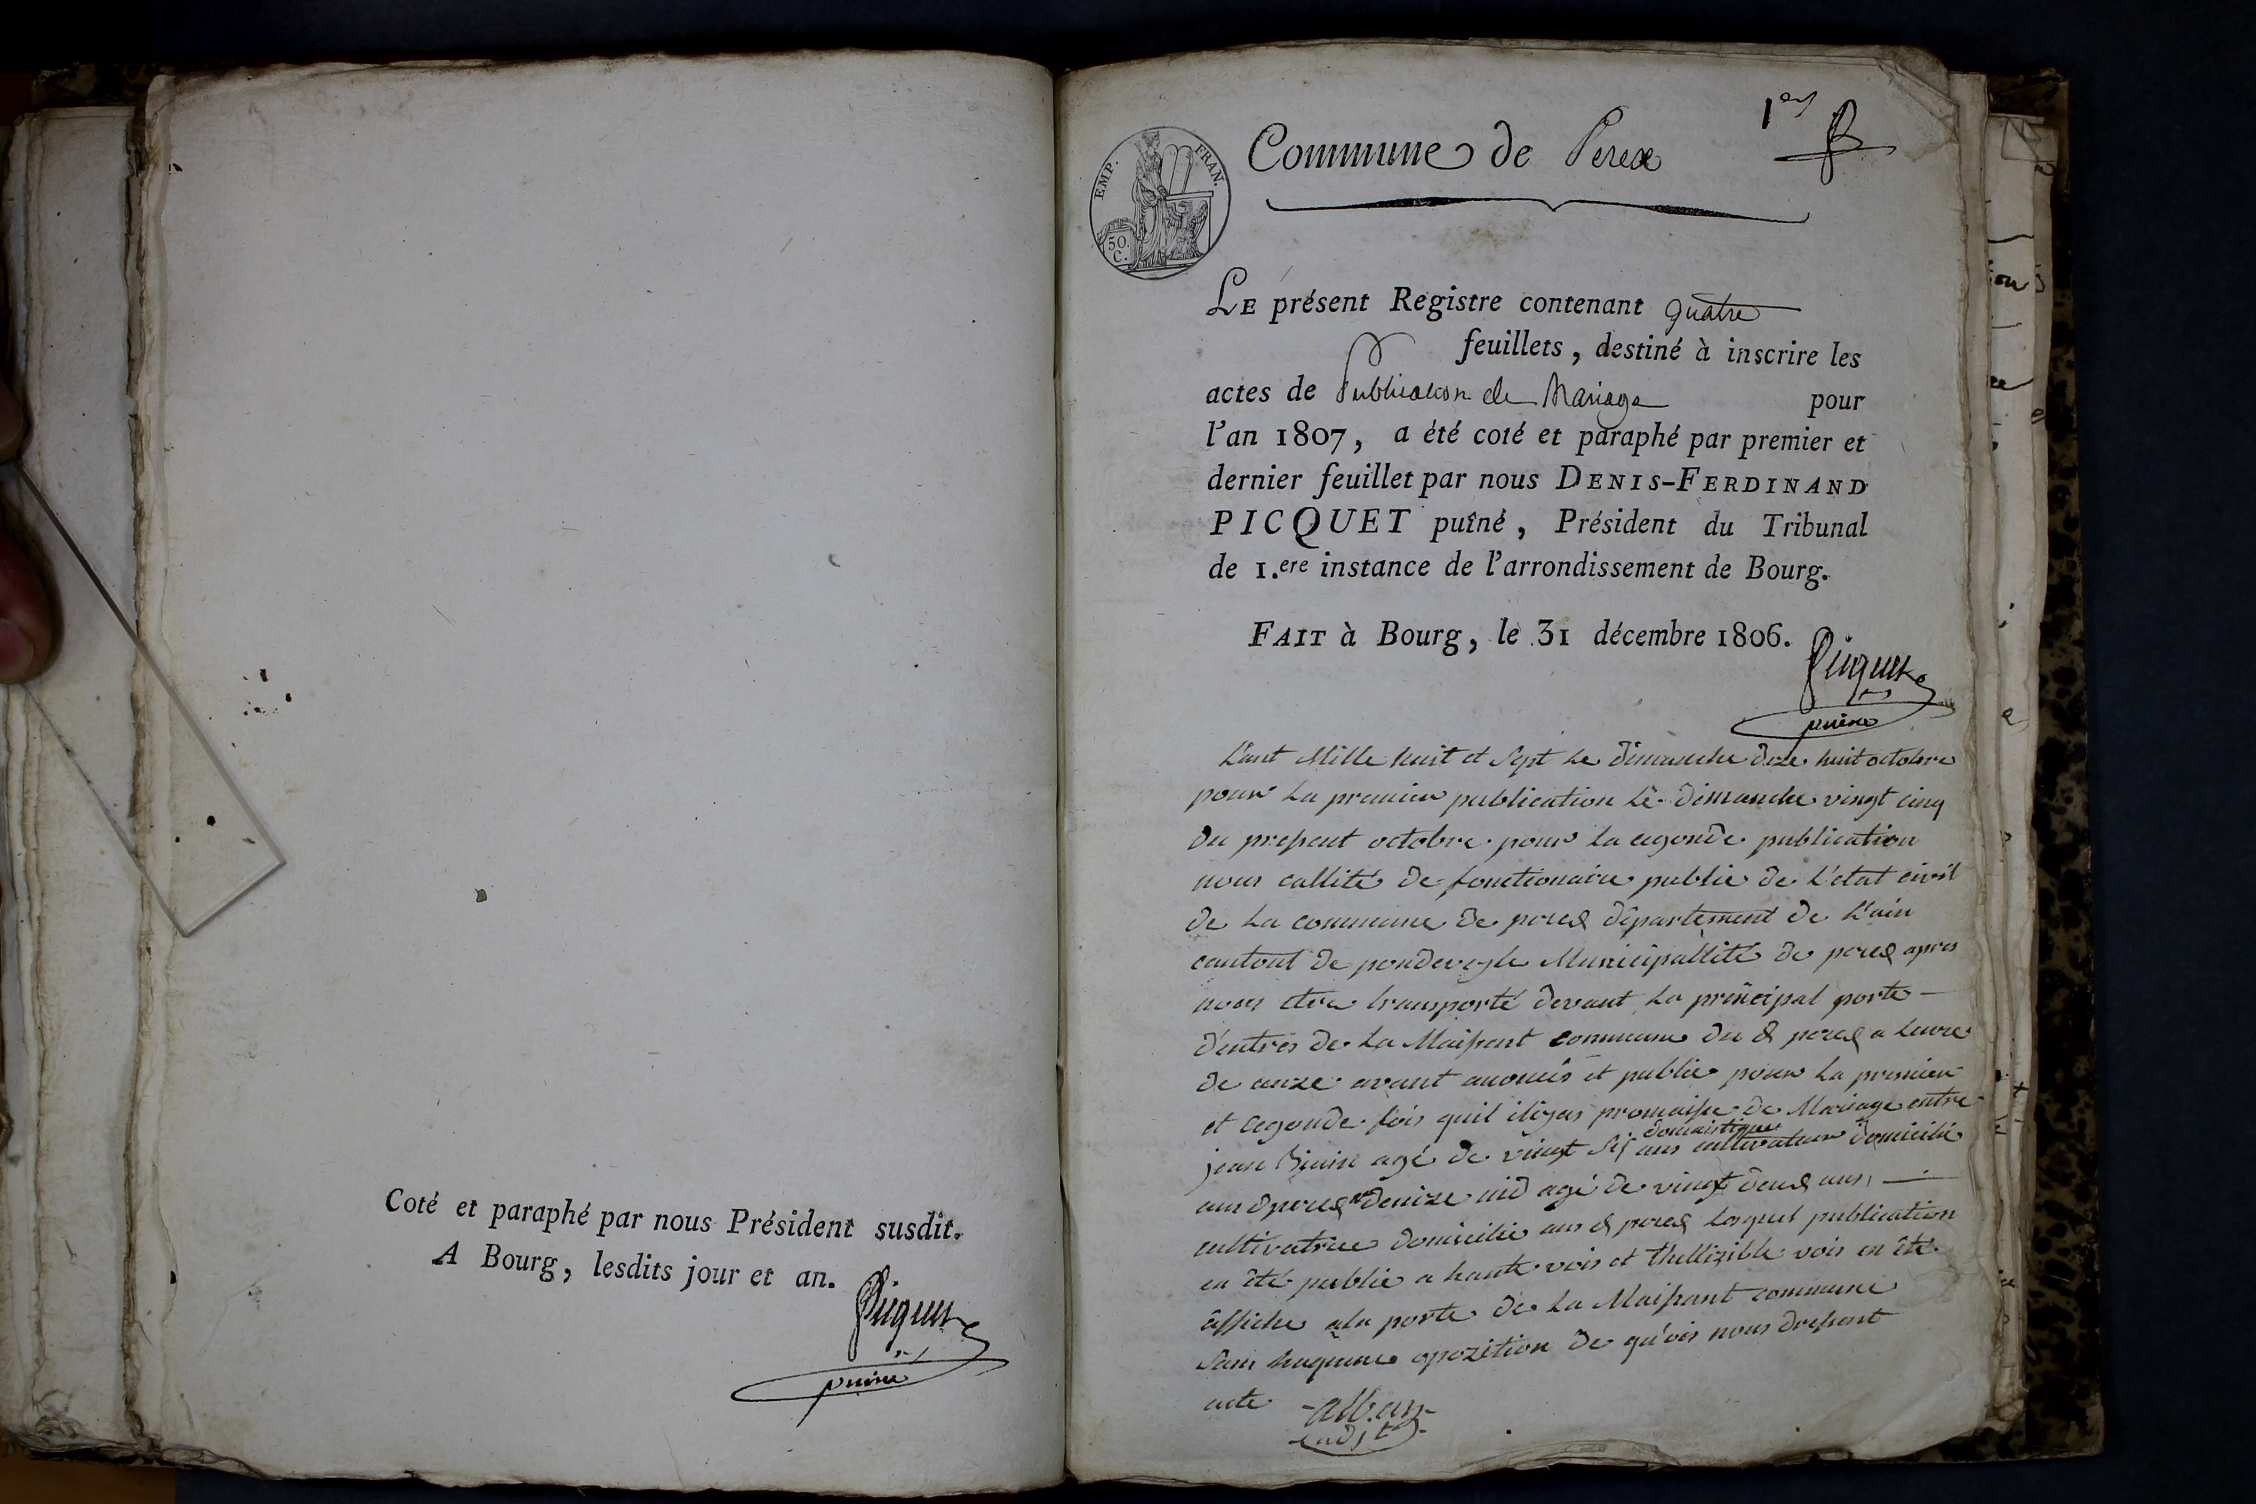 Coté et paraphé par nous Président susdit.
A Bourg, lesdits jour et an.
Picquet
puiné
1er
EMP. FRAN.
50 C.
Commune de Perex
LE présent Registre contenant quatre
feuillets, destiné à inscrire les
actes de Publication de Mariage pour
l'an 1807, a été coté et paraphé par premier et
dernier feuillet par nous DENIS-FERDINAND
PICQUET puîné, Président du Tribunal
de 1.ere instance de l'arrondissement de Bourg.
FAIT à Bourg, le 31 décembre 1806.
Picquet
puiné
L'ant Mille huit et sept le dimanche dize huit octobre
pour la premier publication le dimanche vingt cinq
du present octobre pour la cegonde publication
nous callité de fonctionaire public de L'etat civil
de la commune de perex département de L'ain
cantont de pondeveyle Municipallité de perex apres
nous etre transporté devant la principal porte
d'entrés de la Maisont commune du d perex a heure
de onze avant anoncés et publie pour la premier
et cegonde fois quil il y as promaise de Mariage entre
domaistique
jean agé de vingt six ans cultivateur domicilié
aus d perex denize agé de vingt deux ans
cultivatrice domicilié aus d perex lesquel publication
en été publie a haute vois et thellizible vois en été
affiche a la porte de la Maisont commune
sans huqune opozition de qu'ois nous dresent
acte
alban
adjt